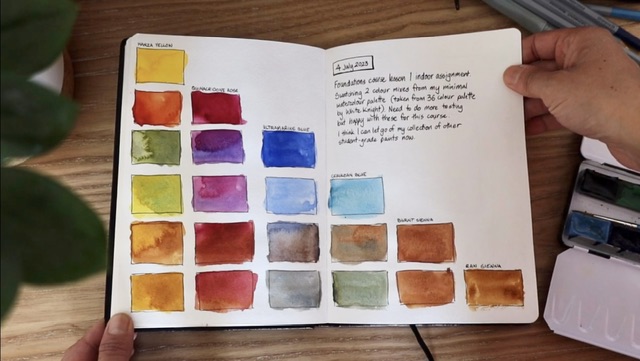 HANSA YELLOW
QUINACRIDONE ROSE
ULTRAMARINE BLUE
CERULEAN BLUE
BURNT SIENNA
RAW SIENNA
4 July 2023
Foundations course lesson 1 indoor assignment
Swatching 2 colour mixes from my minimal
watercolour palette (taken from 36 colour palette
by White Knight). Need to do more testing
but happy with these for this course.
I think I can let go of my collection of other
student-grade paints now.